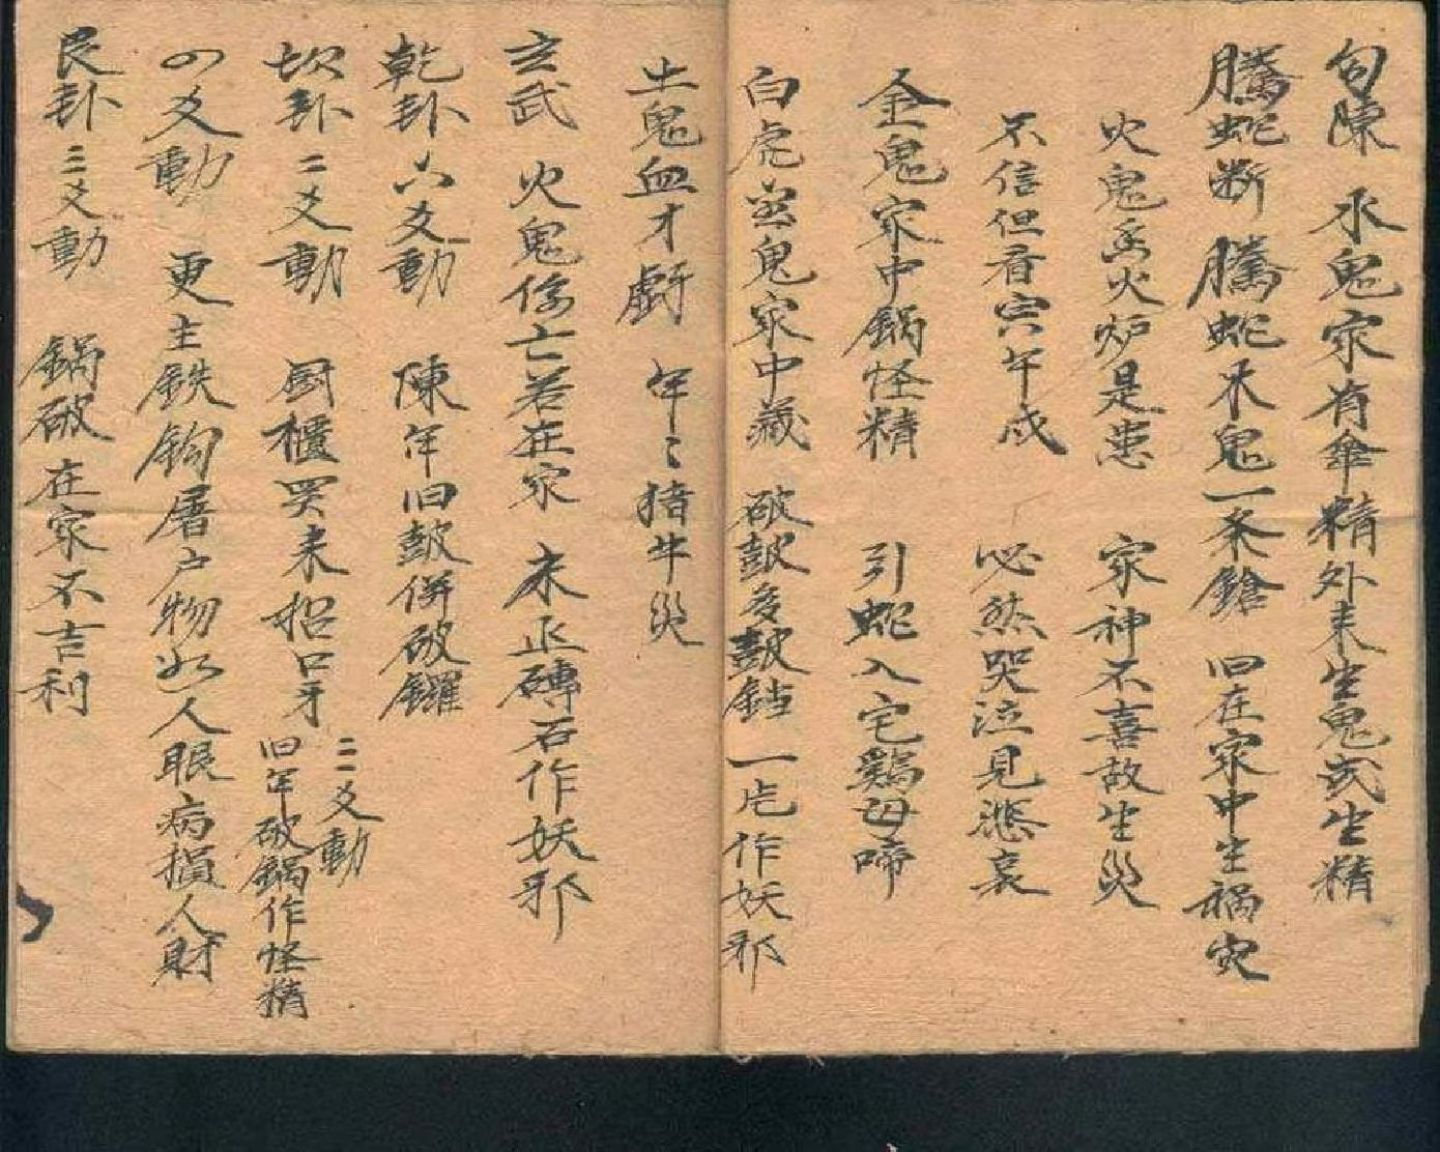 勾陳 水鬼家有傘精外来生鬼成生精
騰蛇断 騰蛇木鬼一条鎗 旧在家中生禍灾
火鬼 火炉是患 家神不喜故生災
不信但看寅午戍 必然哭泣見悲哀
金鬼家中鍋怪精 引蛇入宅鷄母啼
白虎 鬼家中藏 破鼓多皷鐘 一 作妖邪
土鬼血才 年〻猪牛災
玄武 火鬼傷亡若在家 未 磚石作妖邪
乾卦六爻動 陳年旧鼓併破鑼
坎卦二爻動 厨櫃買来招口牙
二爻動
旧年破鍋作怪精
四爻動 更主鉄鈎屠户物 人眼病損人財
艮卦三爻動 鍋破在家不吉利